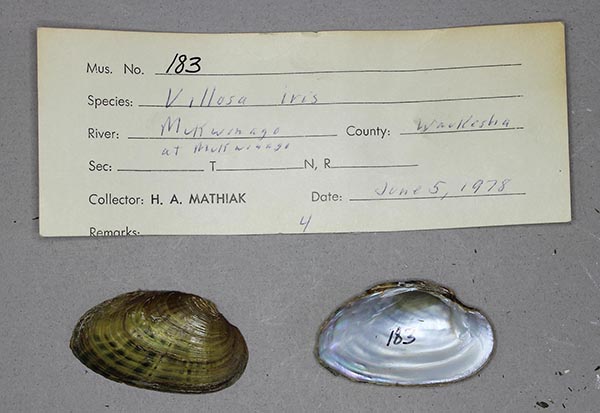 Mus. No. 183
Species: Villosa iris
River: Mukwonago County: Waukesha
at Mukwonago
Sec: T N, R
Collector: H. A. MATHIAK Date: June 5, 1978
Remarks: 4
183